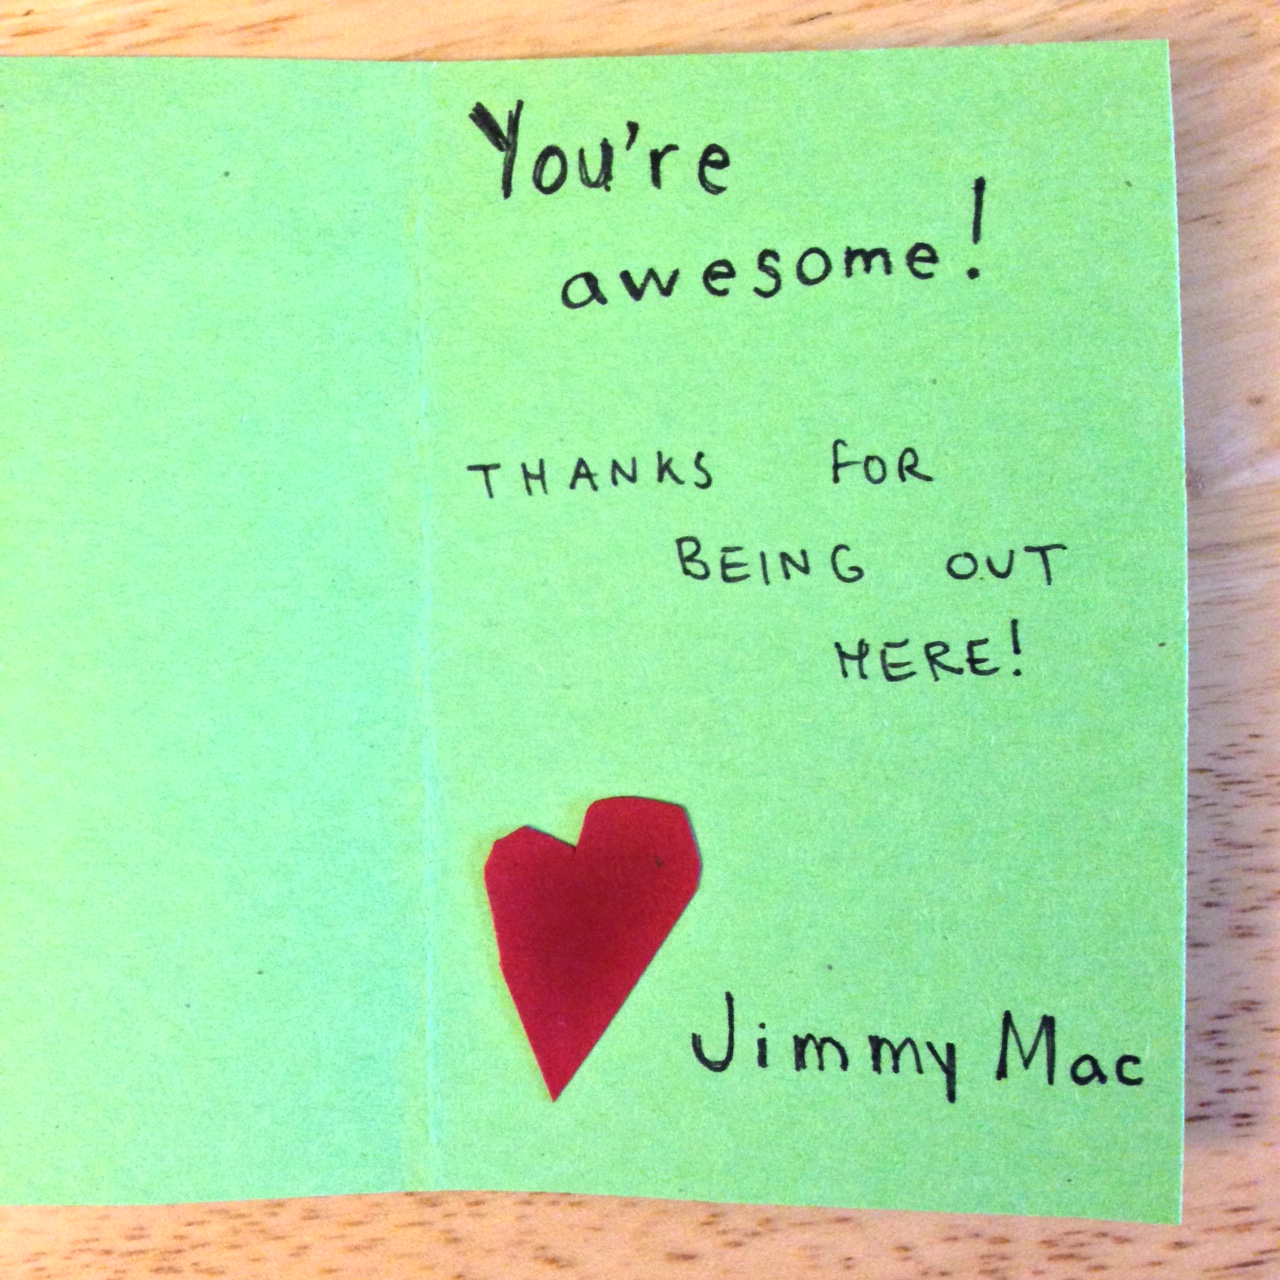 You're
awesome!
THANKS FOR
BEING OUT
HERE!
Jimmy Mac